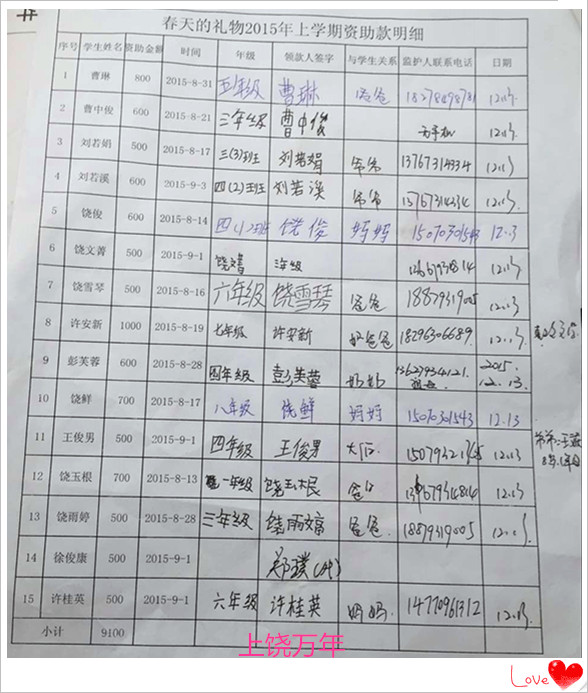 春天的礼物2015年上学期资助款明细
序号 学生姓名 资助金额 时间 年级 领款人签字 与学生关系 监护人联系电话 日期
1 曹琳 800 2015-8-31 五年级 曹琳 爸爸 12.13
2 曹中俊 600 2015-8-21 三年级 曹中俊 12.13
3 刘若娟 500 2015-8-17 三(3)班 刘若娟 爷爷 13767314934 12.13
4 刘若溪 600 2015-9-3 四(2)班 刘若溪 爷爷 12.13
5 饶俊 600 2015-8-14 四(1)班 饶俊 妈妈 15070301543 12.13
6 饶文菁 500 2015-9-1 12.13
7 饶雪琴 500 2015-8-16 六年级 饶雪琴 爸爸 18879319005 12.13
8 许安新 1000 2015-8-19 七年级 许安新 爸爸 18296306689 12.13
9 彭芙蓉 600 2015-8-28 四年级 彭芙蓉 奶奶 13627934121 2015.12.13
10 饶鲜 700 2015-8-17 八年级 饶鲜 妈妈 15070301543 12.13
11 王俊男 500 2015-9-1 四年级 王俊男 12.13
12 饶玉根 700 2015-8-13 一年级 12.13
13 饶雨婷 500 2015-8-28 三年级 饶雨婷 爸爸 18879319005 12.13
14 徐俊康 500 2015-9-1
15 许桂英 500 2015-9-1 六年级 许桂英 妈妈 14770961312 12.13
小计 9100
上饶万年
Love